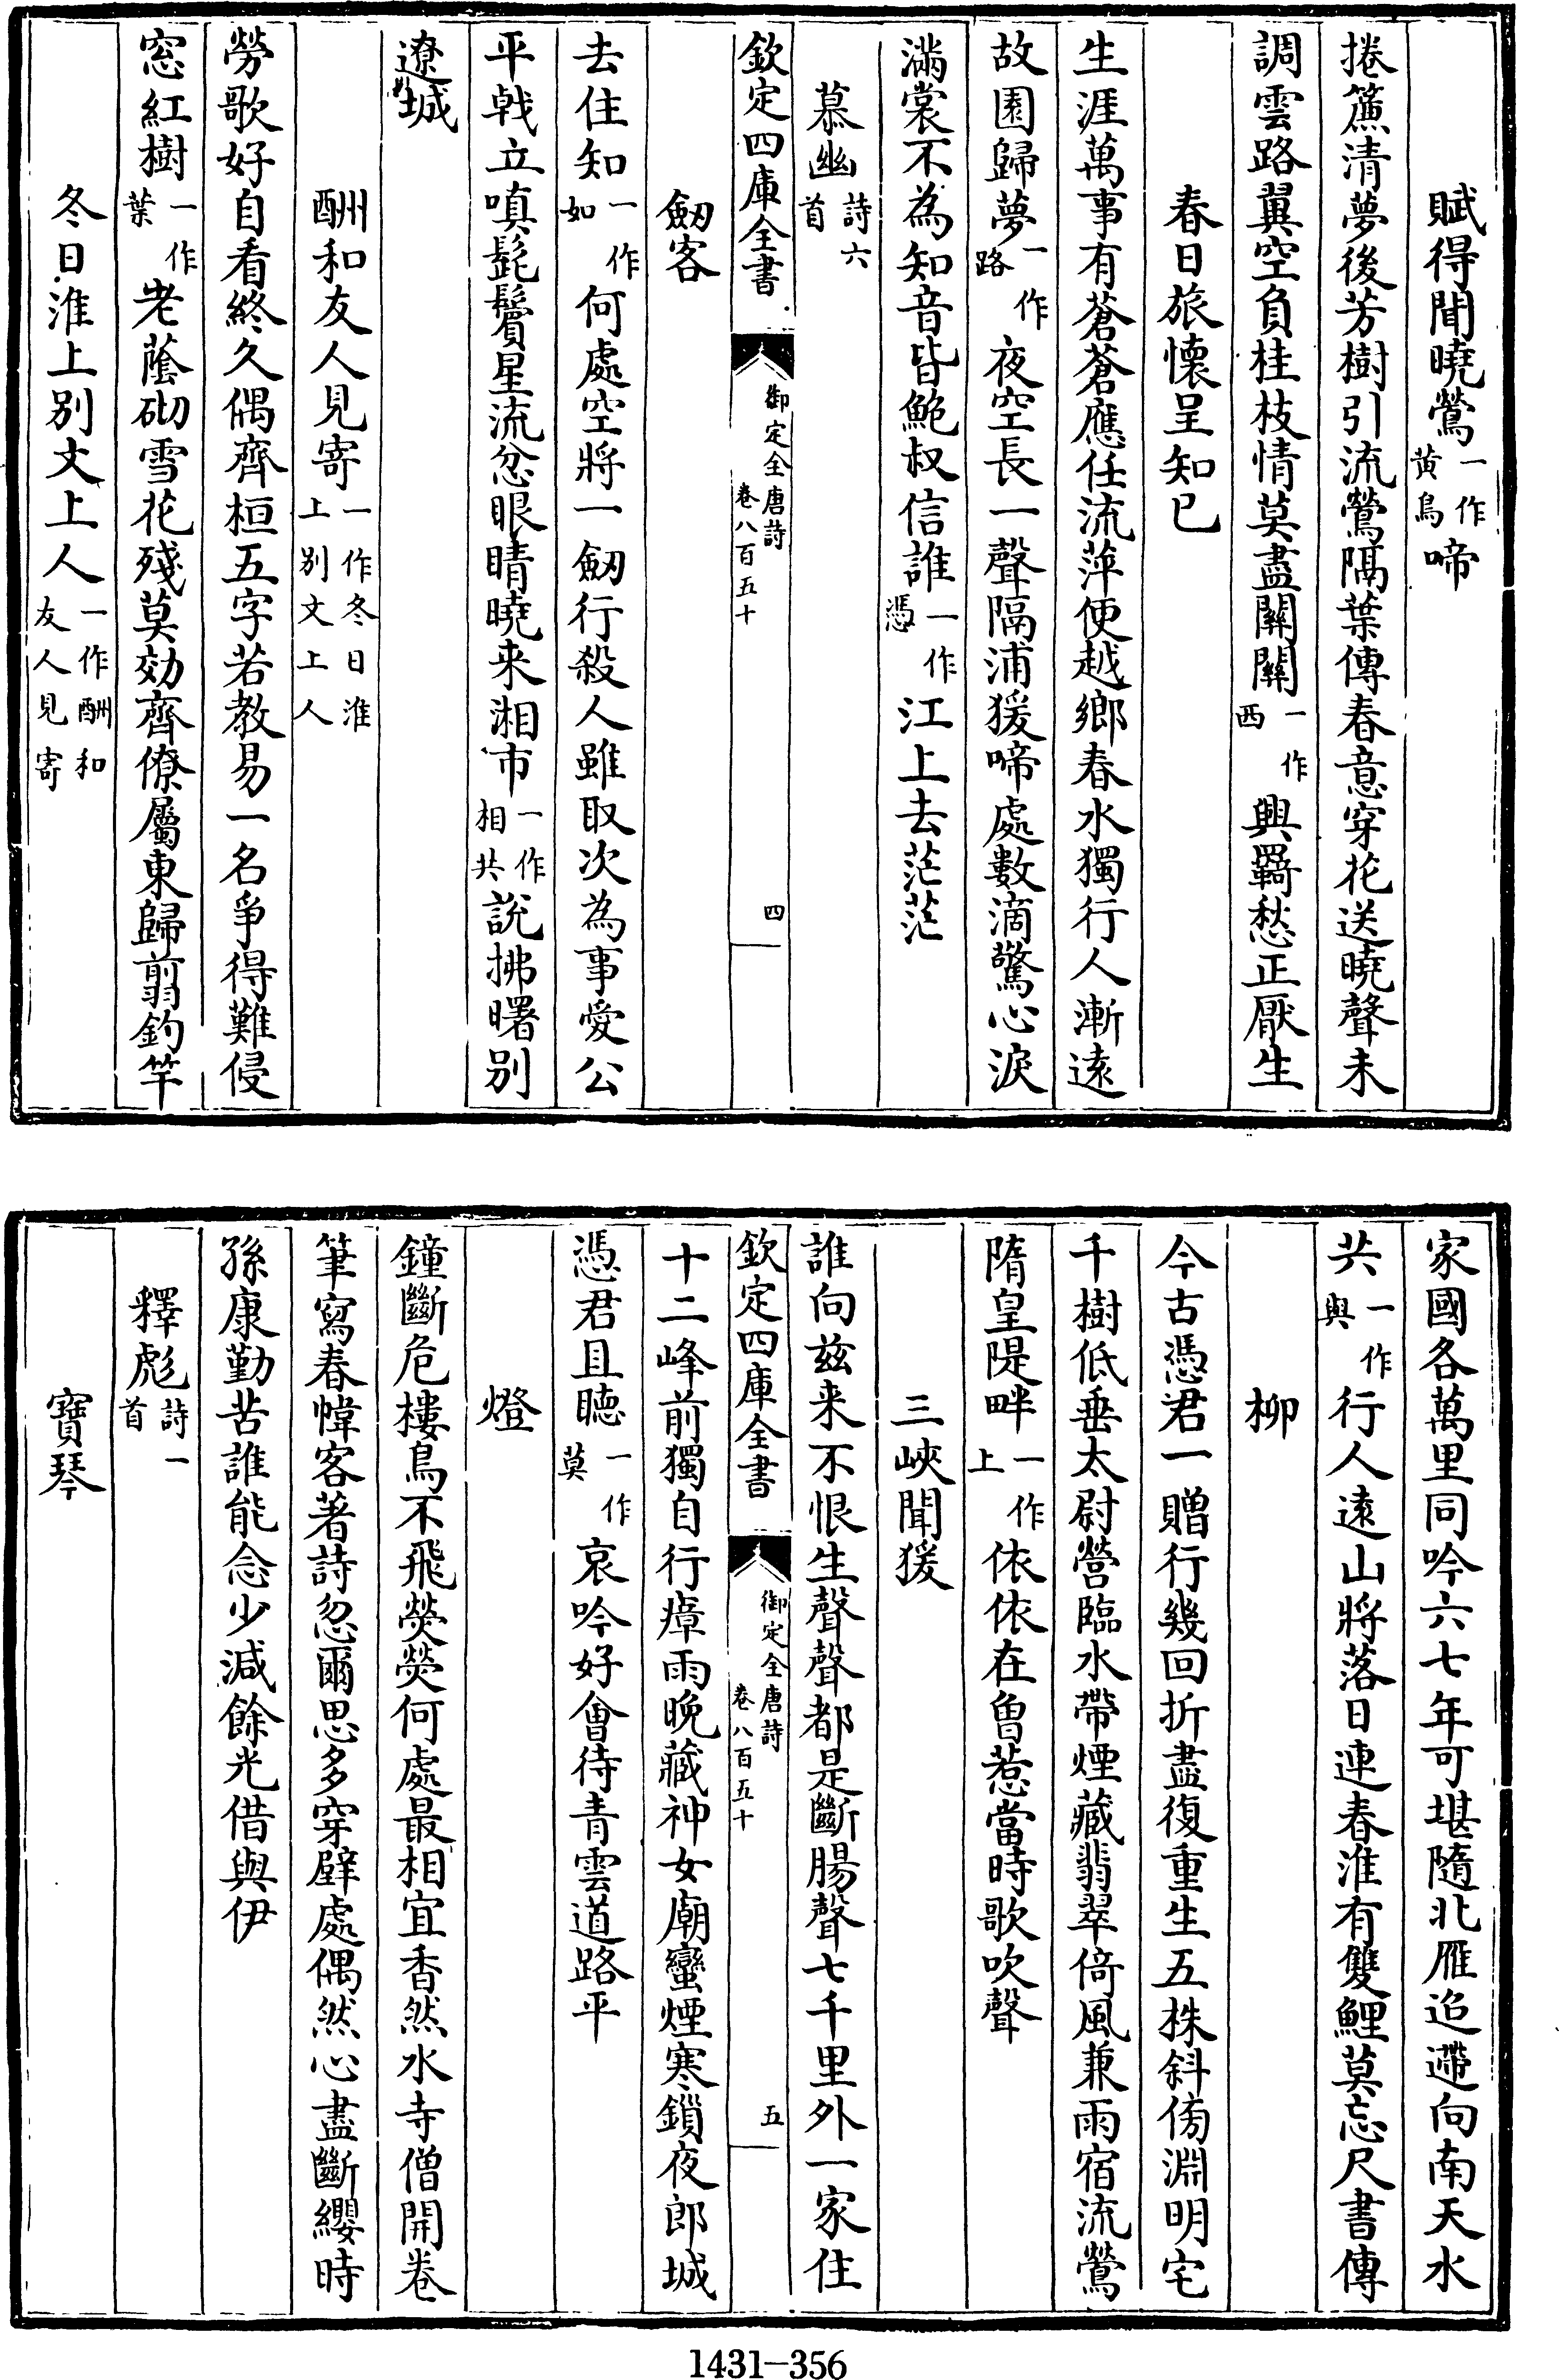 賦得聞曉鶯一作黄鳥啼
捲簾清夢後芳樹引流鶯隔葉傳春意穿花送曉聲未
調雲路翼空負桂枝情莫盡關關一作西興羇愁正厭生
春日旅懷呈知己
生涯萬事有蒼蒼應任流萍便越鄉春水獨行人漸遠
故園歸夢一作路夜空長一聲隔浦猨啼處數滴驚心淚
滿裳不為知音皆鮑叔信誰一作憑江上去茫茫
慕幽詩六首
欽定四庫全書
御定全唐詩
卷八百五十
四
劒客
去住知一作如何處空將一劒行殺人雖取次為事愛公
平戟立嗔髭鬢星流忿眼睛曉来湘市一作相共說拂曙別
遼城
酬和友人見寄一作冬日淮上别文上人
勞歌好自看終久偶齊桓五字若教易一名爭得難侵
窓紅樹一作葉老蔭砌雪花殘莫効齊僚屬東歸翦釣竿
冬日淮上别文上人一作酬和友人見寄
家國各萬里同吟六七年可堪隨北雁迢遰向南天水
共一作與行人遠山將落日連春淮有雙鯉莫忘尺書傳
柳
今古憑君一贈行幾回折盡復重生五株斜傍淵明宅
千樹低垂太尉營臨水帶煙藏翡翠倚風兼雨宿流鶯
隋皇隄畔一作上依依在曾惹當時歌吹聲
三峽聞猨
誰向兹来不恨生聲聲都是斷腸聲七千里外一家住
欽定四庫全書
御定全唐詩
卷八百五十
五
十二峰前獨自行瘴雨晚藏神女廟蠻煙寒鎖夜郎城
憑君且聴一作莫哀吟好會待青雲道路平
燈
鐘斷危樓鳥不飛熒熒何處最相宜香然水寺僧開卷
筆寫春幃客著詩忽爾思多穿壁處偶然心盡斷纓時
孫康勤苦誰能念少減餘光借與伊
釋彪詩一首
寶琴
1431-356